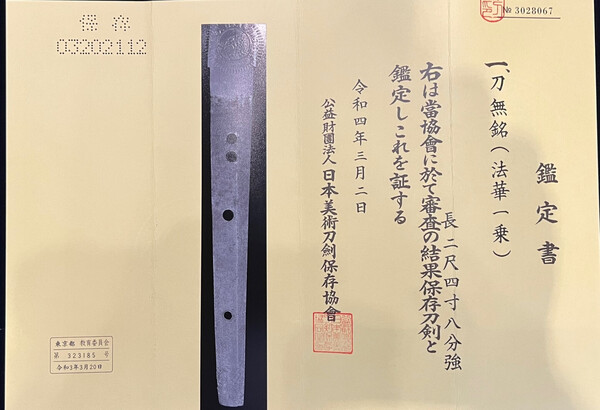 鑑定書
№ 3028067
一、刀 無銘（法華一乗）
長二尺四寸八分強
右は當協會に於て審査の結果保存刀剣と
鑑定しこれを証する
令和四年三月二日
公益財團法人 日本美術刀劍保存協會
保存
03202112
東京都 教育委員会
第 323185 号
令和3年3月20日